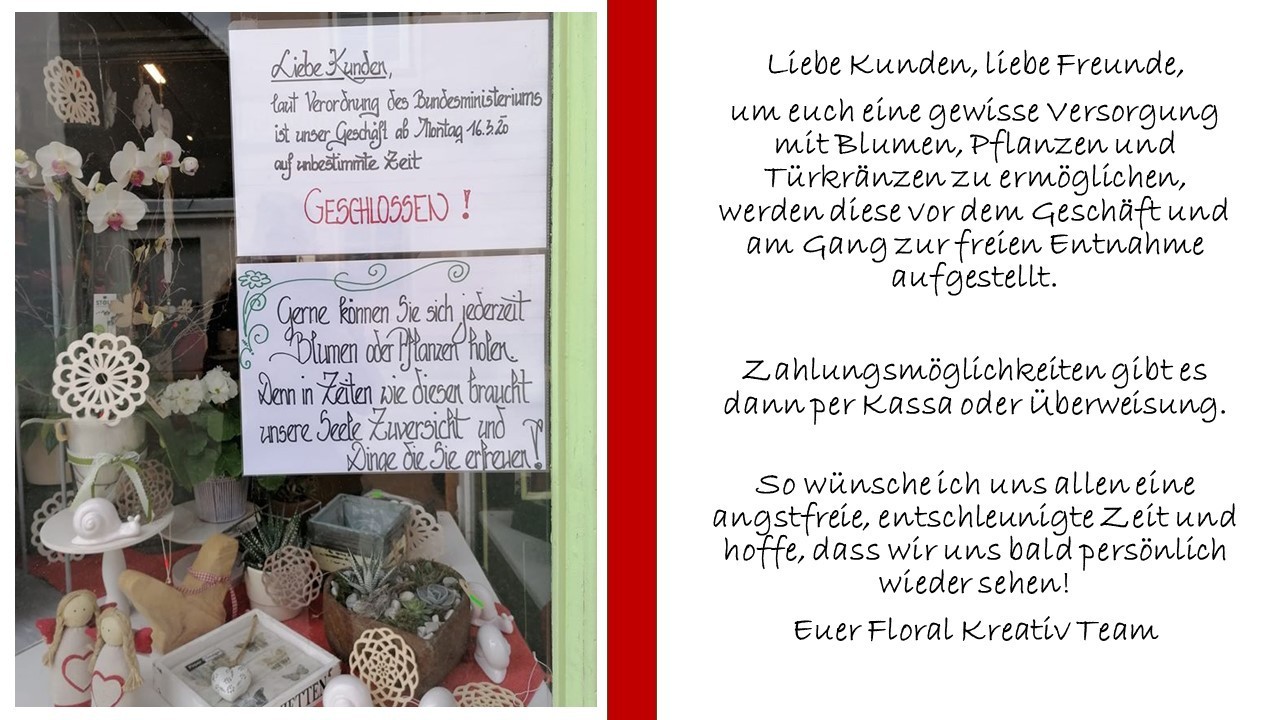 Liebe Kunden,
laut Verordnung des Bundesministeriums
ist unser Geschäft ab Montag 16.3.20
auf unbestimmte Zeit
GESCHLOSSEN !
Gerne können Sie sich jederzeit
Blumen oder Pflanzen holen.
Denn in Zeiten wie diesen braucht
unsere Seele Zuversicht und
Dinge die Sie erfreuen!
Liebe Kunden, liebe Freunde,
um euch eine gewisse Versorgung
mit Blumen, Pflanzen und
Türkränzen zu ermöglichen,
werden diese vor dem Geschäft und
am Gang zur freien Entnahme
aufgestellt.
Zahlungsmöglichkeiten gibt es
dann per Kassa oder Überweisung.
So wünsche ich uns allen eine
angstfreie, entschleunigte Zeit und
hoffe, dass wir uns bald persönlich
wieder sehen!
Euer Floral Kreativ Team